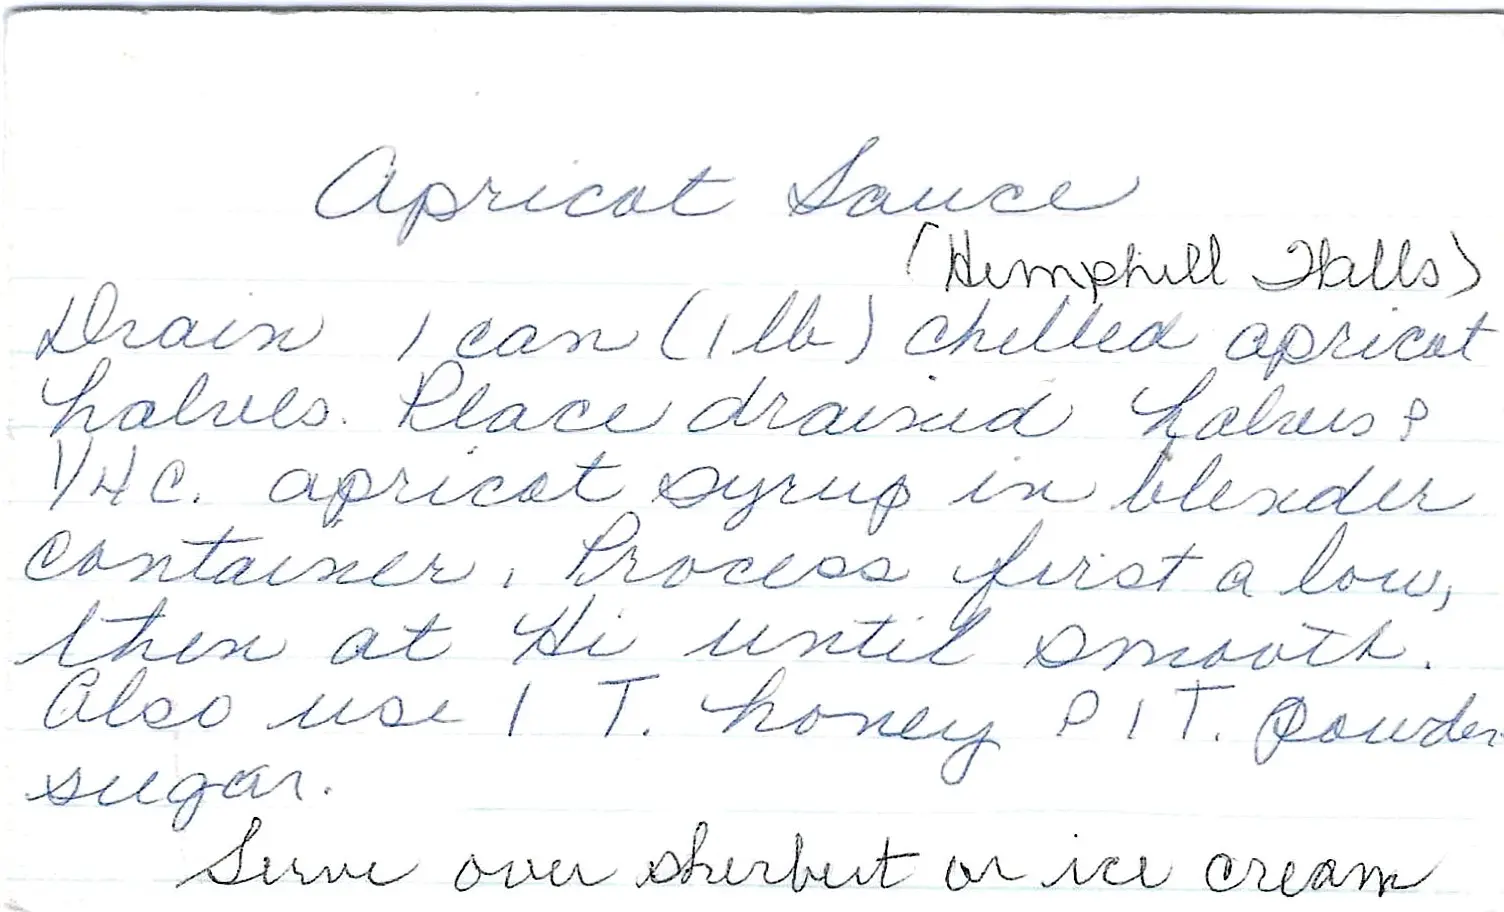 Apricot Sauce
(Hemphill Halls)
Drain 1 can (1 lb) chilled apricot
halves. Place drained halves &
1/4 C. apricot syrup in blender
container. Process first a low,
then at Hi until smooth.
Also use 1 T. honey & 1 T. powder
sugar.
Serve over sherbet or ice cream